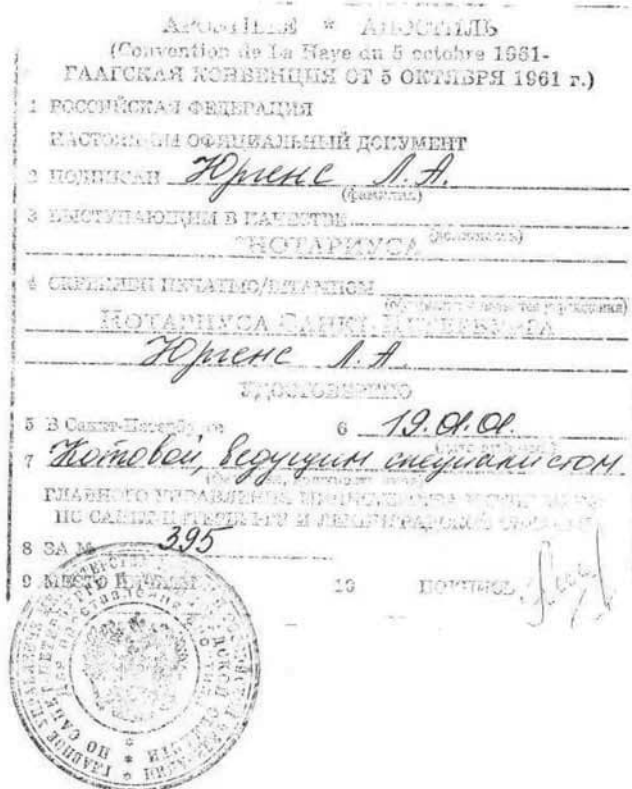 APOSTILLE * АПОСТИЛЬ
(Convention de La Haye du 5 octobre 1961-
ГААГСКАЯ КОНВЕНЦИЯ ОТ 5 ОКТЯБРЯ 1961 г.)
1 РОССИЙСКАЯ ФЕДЕРАЦИЯ
НАСТОЯЩИЙ ОФИЦИАЛЬНЫЙ ДОКУМЕНТ
2 ПОДПИСАН Юргенс Л.А.
(фамилия)
3 ВЫСТУПАЮЩИМ В КАЧЕСТВЕ
(должность)
НОТАРИУСА
4 СКРЕПЛЕН ПЕЧАТЬЮ/ШТАМПОМ
(официальное название учреждения)
НОТАРИУСА САНКТ-ПЕТЕРБУРГА
Юргенс Л.А.
УДОСТОВЕРЕНО
5 В Санкт-Петербурге 6 19.01.01.
7 Котовой, ведущим специалистом
ГЛАВНОГО УПРАВЛЕНИЯ МИНИСТЕРСТВА
ПО САНКТ-ПЕТЕРБУРГУ И ЛЕНИНГРАДСКОЙ ОБЛАСТИ
8 ЗА № 395
9 МЕСТО ПЕЧАТИ 10 ПОДПИСЬ